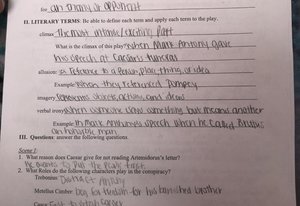 for an enemy or opponent
II. LITERARY TERMS: Be able to define each term and apply each term to the play.
climax The most intense/exciting part
What is the climax of this play? When Mark Antony gave
his speech at Caesar's funeral
allusion: a reference to a person, place, thing, or idea
Example: When they referenced Pompey
imagery represents objects, actions, and ideas
verbal irony When someone says something but means another
Example: In Mark Antony's speech when he called Brutus
an honorable man
III. Questions: answer the following questions.
Scene 1:
1. What reason does Caesar give for not reading Artemidorus's letter?
He wants to put the people first
2. What Roles do the following characters play in the conspiracy?
Trebonius Distract Antony
Metellus Cimber Beg for for his banished brother
Casca First to